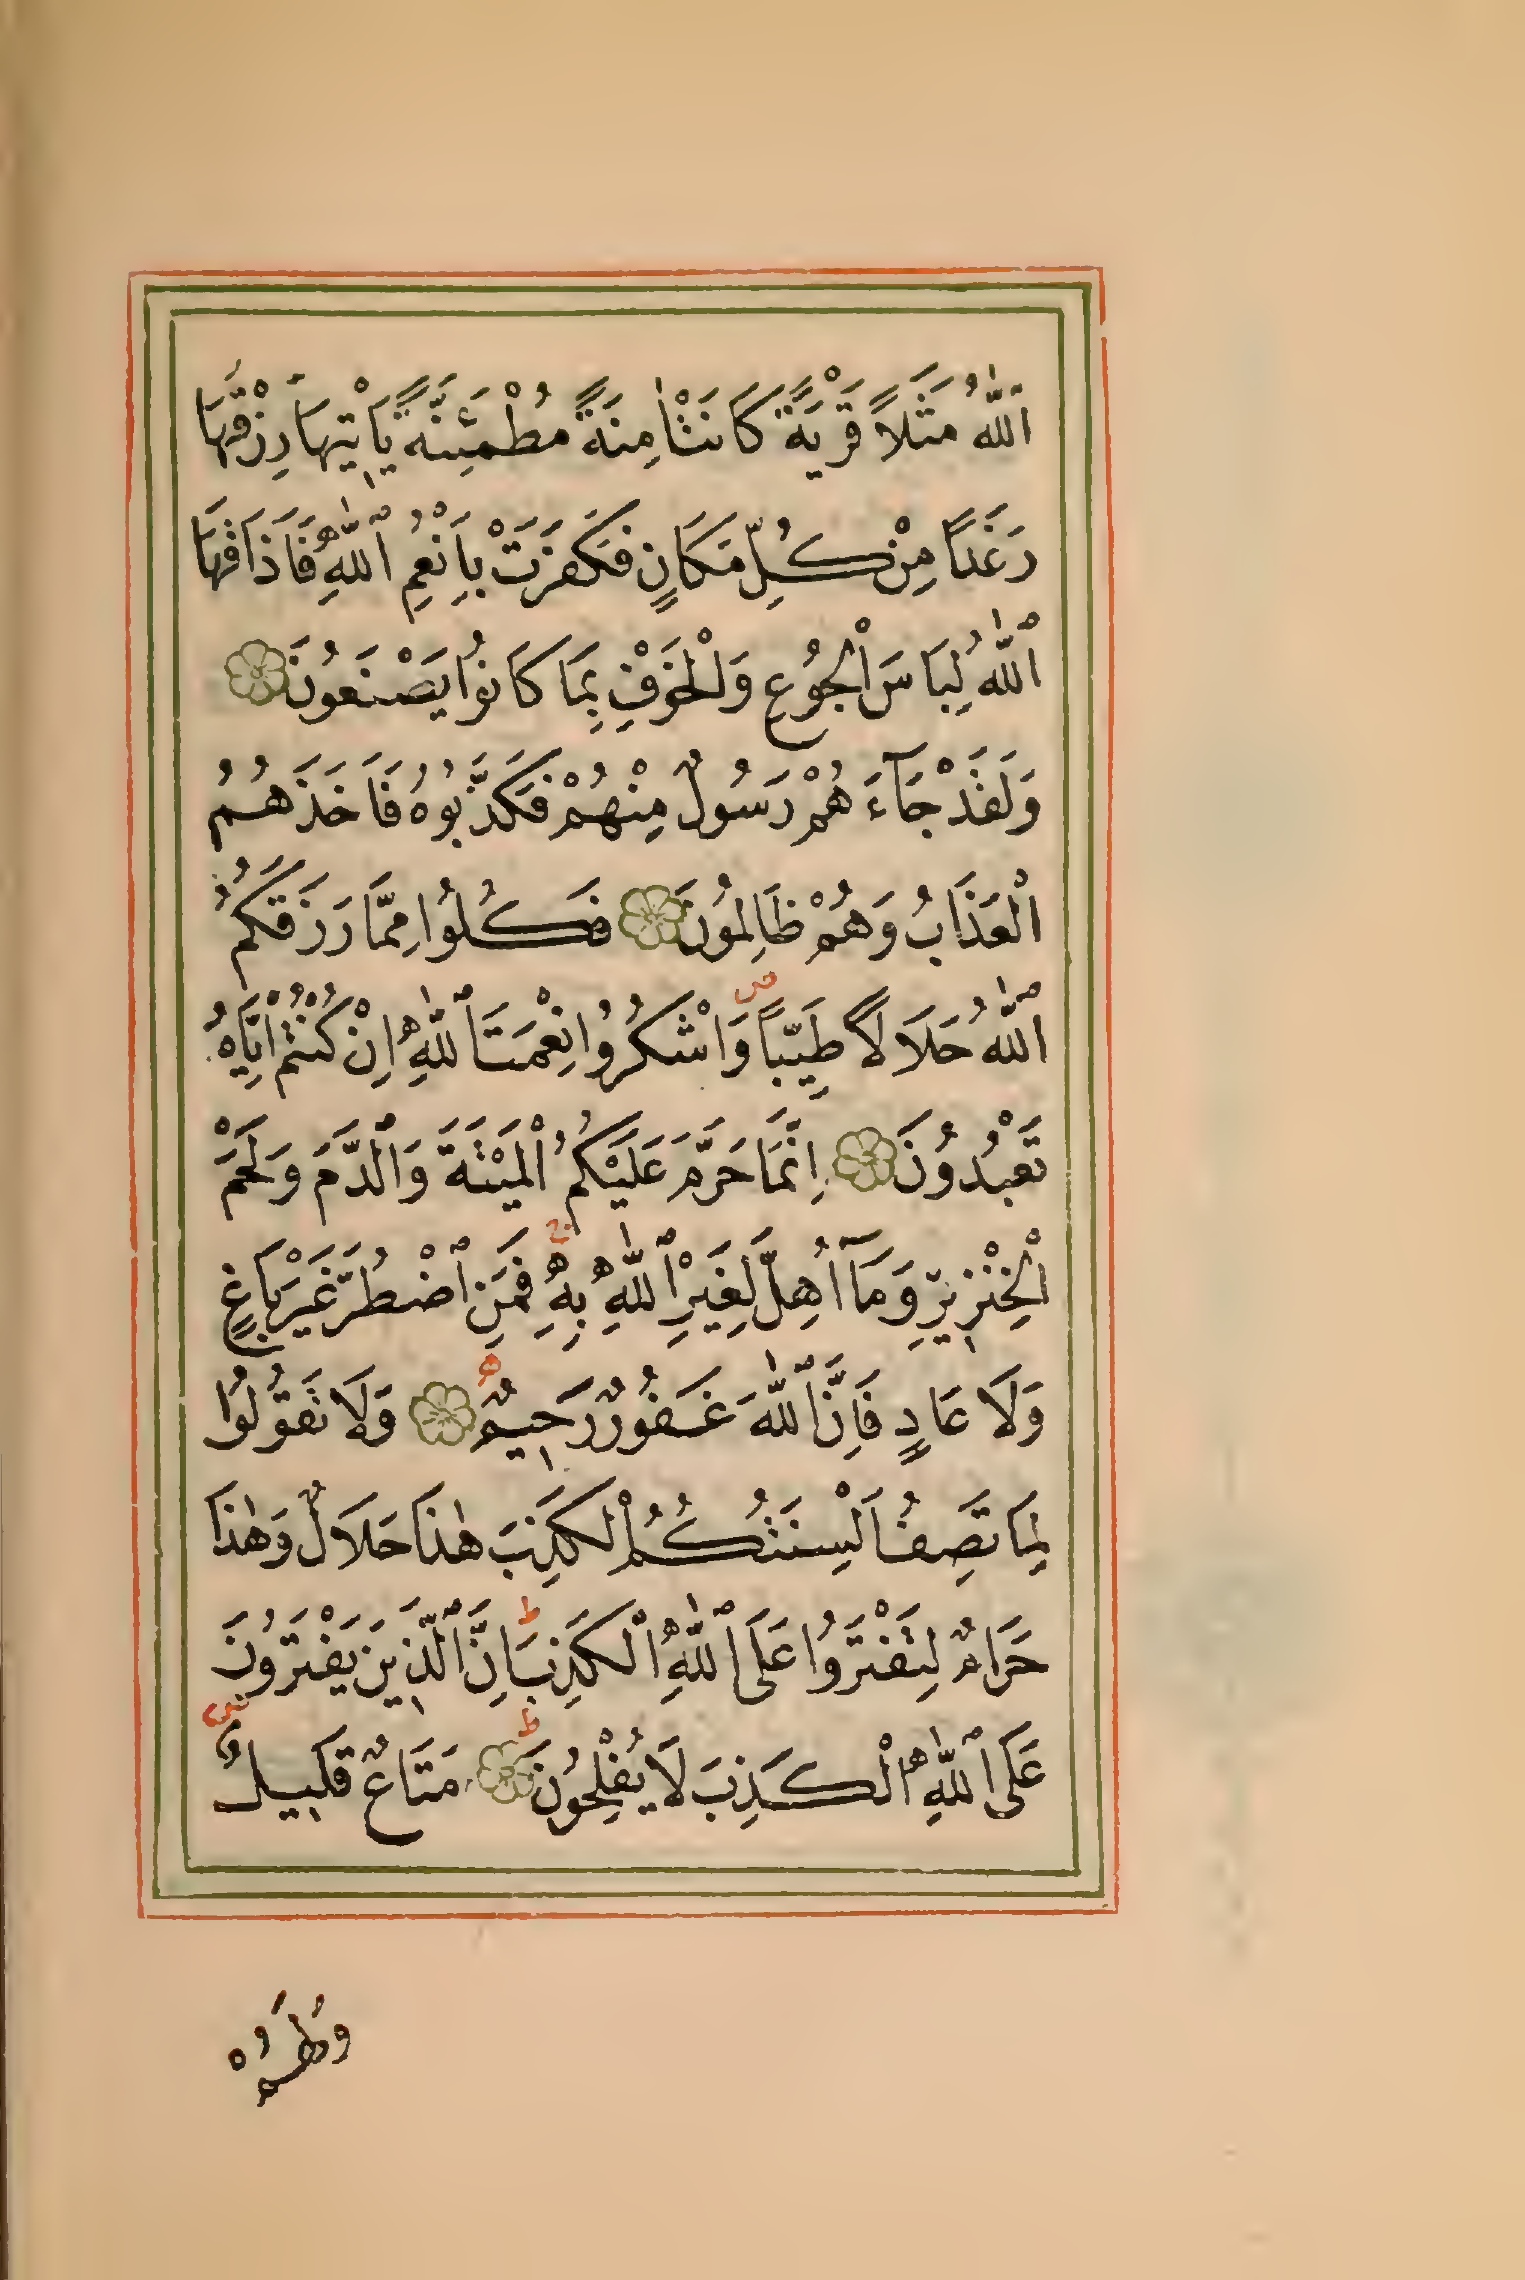 اَللّٰهُ مَثَلًا قَرْيَةً كَانَتْ اٰمِنَةً مُطْمَئِنَّةً يَاْتِيهَا رِزْقُهَا
رَغَدًا مِنْ كُلِّ مَكَانٍ فَكَفَرَتْ بِاَنْعُمِ اللّٰهِ فَاَذَاقَهَا
اللّٰهُ لِبَاسَ الْجُوعِ وَالْخَوْفِ بِمَا كَانُوا يَصْنَعُونَ
وَلَقَدْ جَآءَهُمْ رَسُولٌ مِنْهُمْ فَكَذَّبُوهُ فَاَخَذَهُمُ
الْعَذَابُ وَهُمْ ظَالِمُونَ فَكُلُوا مِمَّا رَزَقَكُمُ
اللّٰهُ حَلَالًا طَيِّبًا ص وَاشْكُرُوا نِعْمَتَ اللّٰهِ اِنْ كُنْتُمْ اِيَّاهُ
تَعْبُدُونَ اِنَّمَا حَرَّمَ عَلَيْكُمُ الْمَيْتَةَ وَالدَّمَ وَلَحْمَ
الْخِنْزِيرِ وَمَآ اُهِلَّ لِغَيْرِ اللّٰهِ بِهِ ج فَمَنِ اضْطُرَّ غَيْرَ بَاغٍ
وَلَا عَادٍ فَاِنَّ اللّٰهَ غَفُورٌ رَحِيمٌ وَلَا تَقُولُوا
لِمَا تَصِفُ اَلْسِنَتُكُمُ الْكَذِبَ هٰذَا حَلَالٌ وَهٰذَا
حَرَامٌ لِتَفْتَرُوا عَلَى اللّٰهِ الْكَذِبَ ط اِنَّ الَّذِينَ يَفْتَرُونَ
عَلَى اللّٰهِ الْكَذِبَ لَا يُفْلِحُونَ ط مَتَاعٌ قَلِيلٌ ص